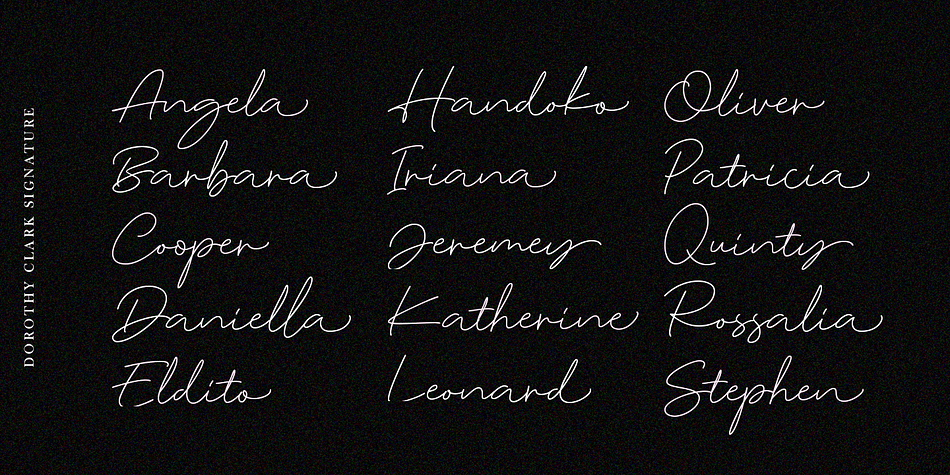 DOROTHY CLARK SIGNATURE
Angela
Barbara
Cooper
Daniella
Eldito
Handoko
Iriana
Jeremey
Katherine
Leonard
Oliver
Patricia
Quinty
Rossalia
Stephen